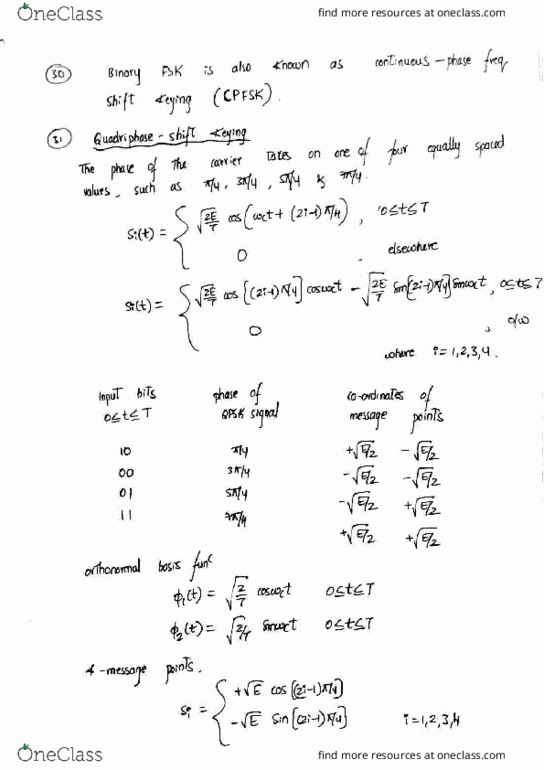 OneClass
find more resources at oneclass.com
30 Binary FSK is also known as continuous-phase freq.
shift keying (CPFSK).
31 Quadriphase-shift keying
The phase of the carrier takes on one of four equally spaced
values, such as π/4, 3π/4, 5π/4 & 7π/4.
Si(t) = { √2E/T cos(ωct + (2i-1)π/4) , 0≤t≤T
0 elsewhere
Si(t) = { √2E/T cos[(2i-1)π/4] cosωct - √2E/T sin[(2i-1)π/4] sinωct, 0≤t≤T
0 , o/w
where i=1,2,3,4.
Input bits phase of co-ordinates of
0≤t≤T QPSK signal message points
10 π/4 +√E/2 -√E/2
00 3π/4 -√E/2 -√E/2
01 5π/4 -√E/2 +√E/2
11 7π/4 +√E/2 +√E/2
orthonormal basis func
ϕ1(t) = √2/T cosωct 0≤t≤T
ϕ2(t) = √2/T sinωct 0≤t≤T
4-message points.
si = { +√E cos[(2i-1)π/4]
-√E sin[(2i-1)π/4] i=1,2,3,4
OneClass
find more resources at oneclass.com